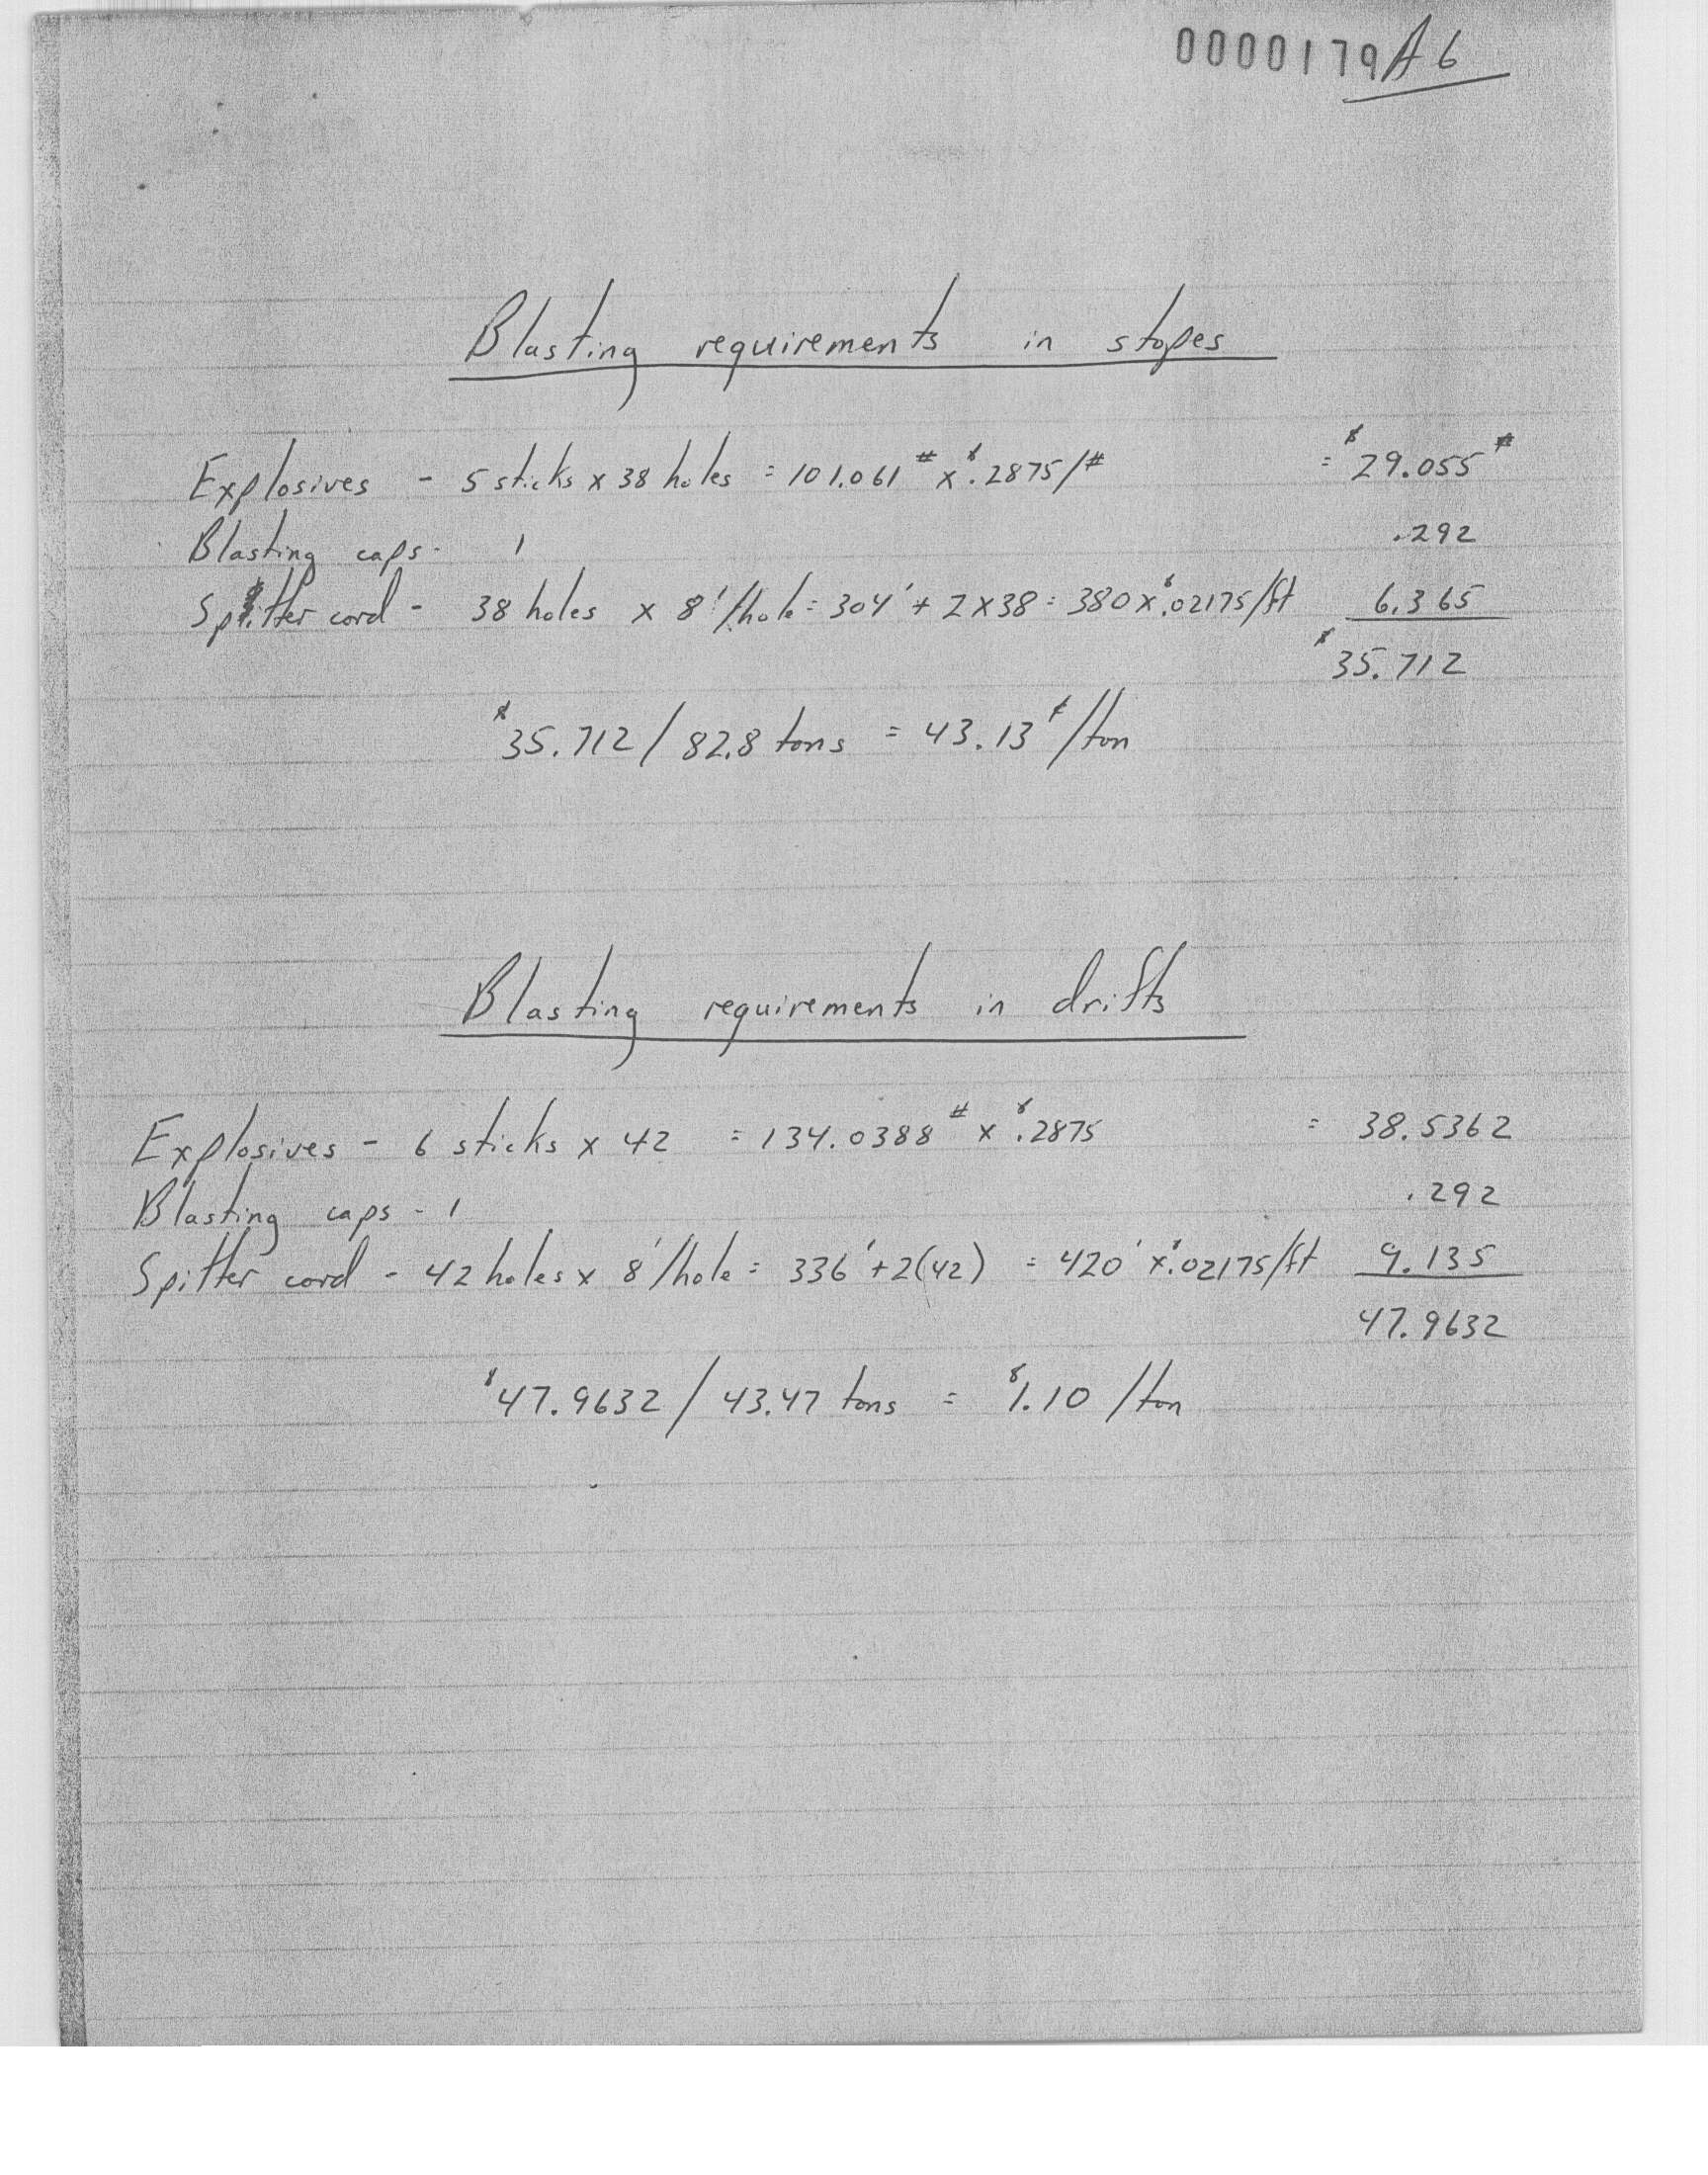 0000179 A6
Blasting requirements in stopes
Explosives - 5 sticks x 38 holes = 101.061# x $.2875/# = $29.055
Blasting caps - 1 .292
Spitter cord - 38 holes x 8'/hole = 304' + 2x38 = 380 x $.02175/ft 6.365
$35.712
$35.712/82.8 tons = 43.13¢/ton
Blasting requirements in drifts
Explosives - 6 sticks x 42 = 134.0388# x $.2875 = 38.5362
Blasting caps - 1 .292
Spitter cord - 42 holes x 8'/hole = 336' + 2(42) = 420' x $.02175/ft 9.135
47.9632
$47.9632/43.47 tons = $1.10/ton